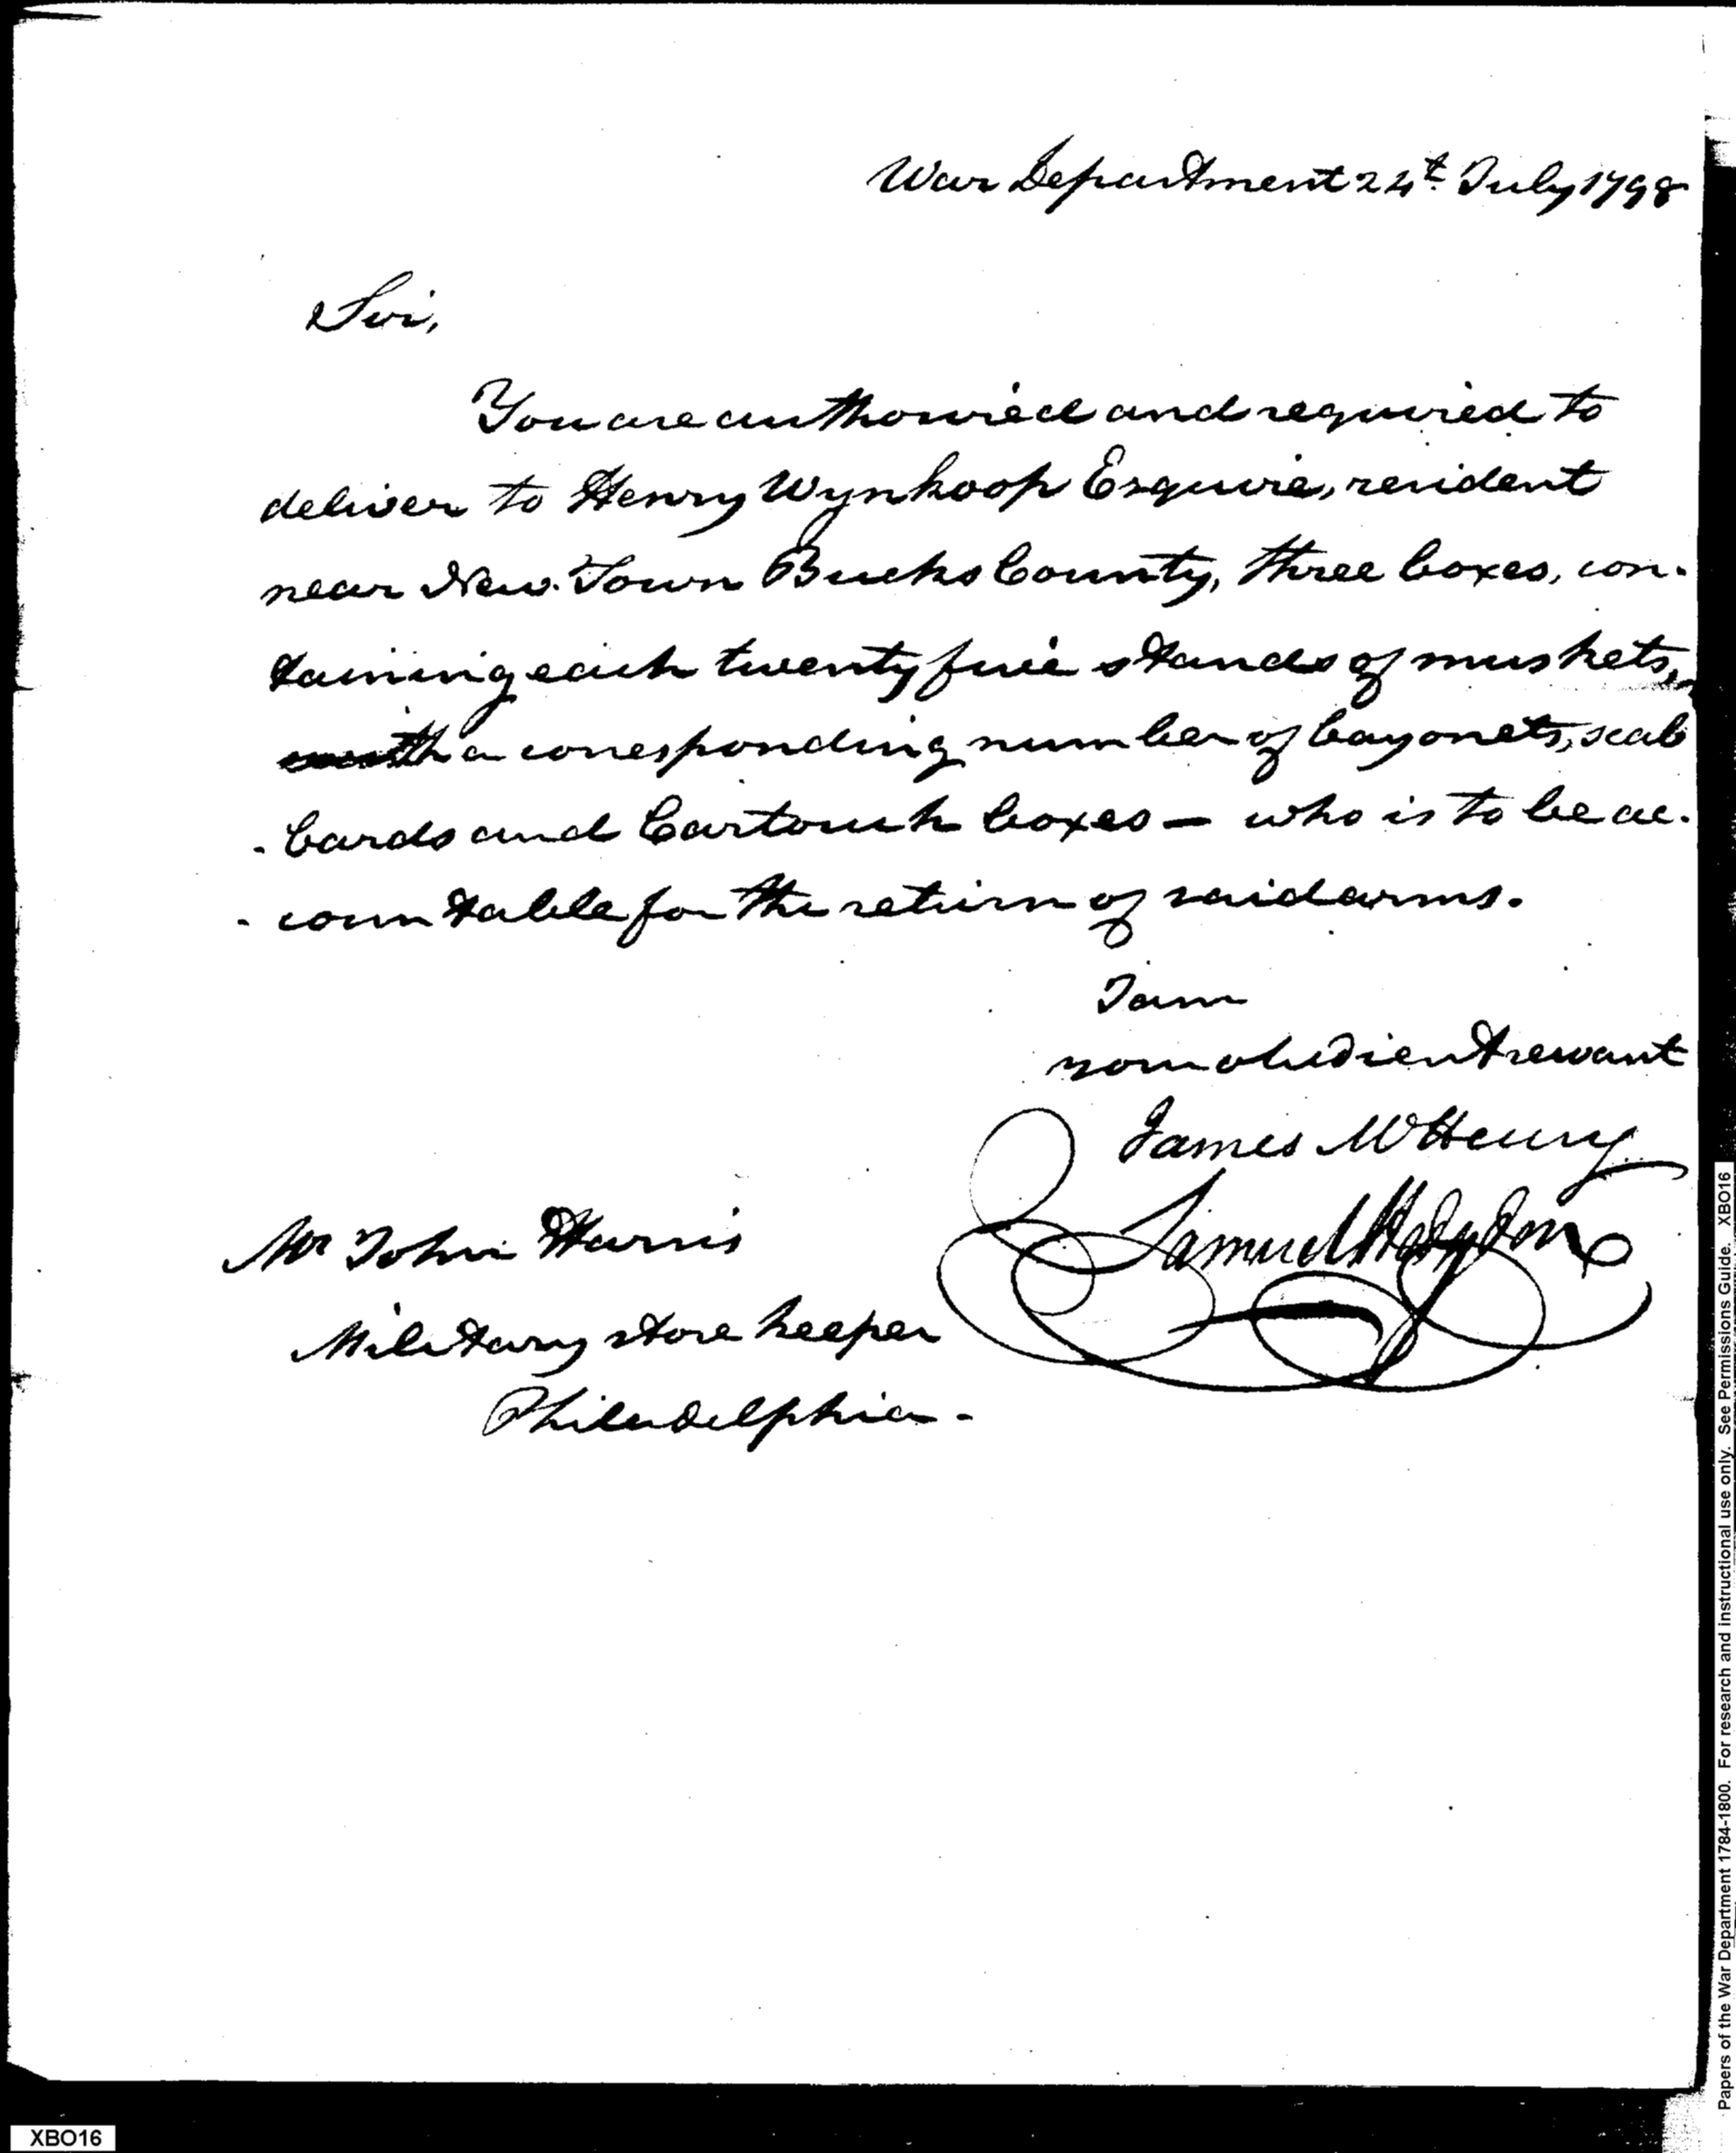 War Department 24t. July 1798
Sir,
You are authorised and required to
deliver to Henry Wynkoop Esquire, resident
near New Town Bucks County, three boxes, con-
taining each twenty five stands of muskets,
with a corresponding number of bayonets, scab
- bards and Cartouch boxes — who is to be ac-
- countable for the return of said arms.
I am
your obedient servant
James McHenry
Samuel Hodgdon
Mr John Harris
Military store keeper
Philadelphia -
Papers of the War Department 1784-1800. For research and instructional use only. See Permissions Guide. XBO16
XBO16